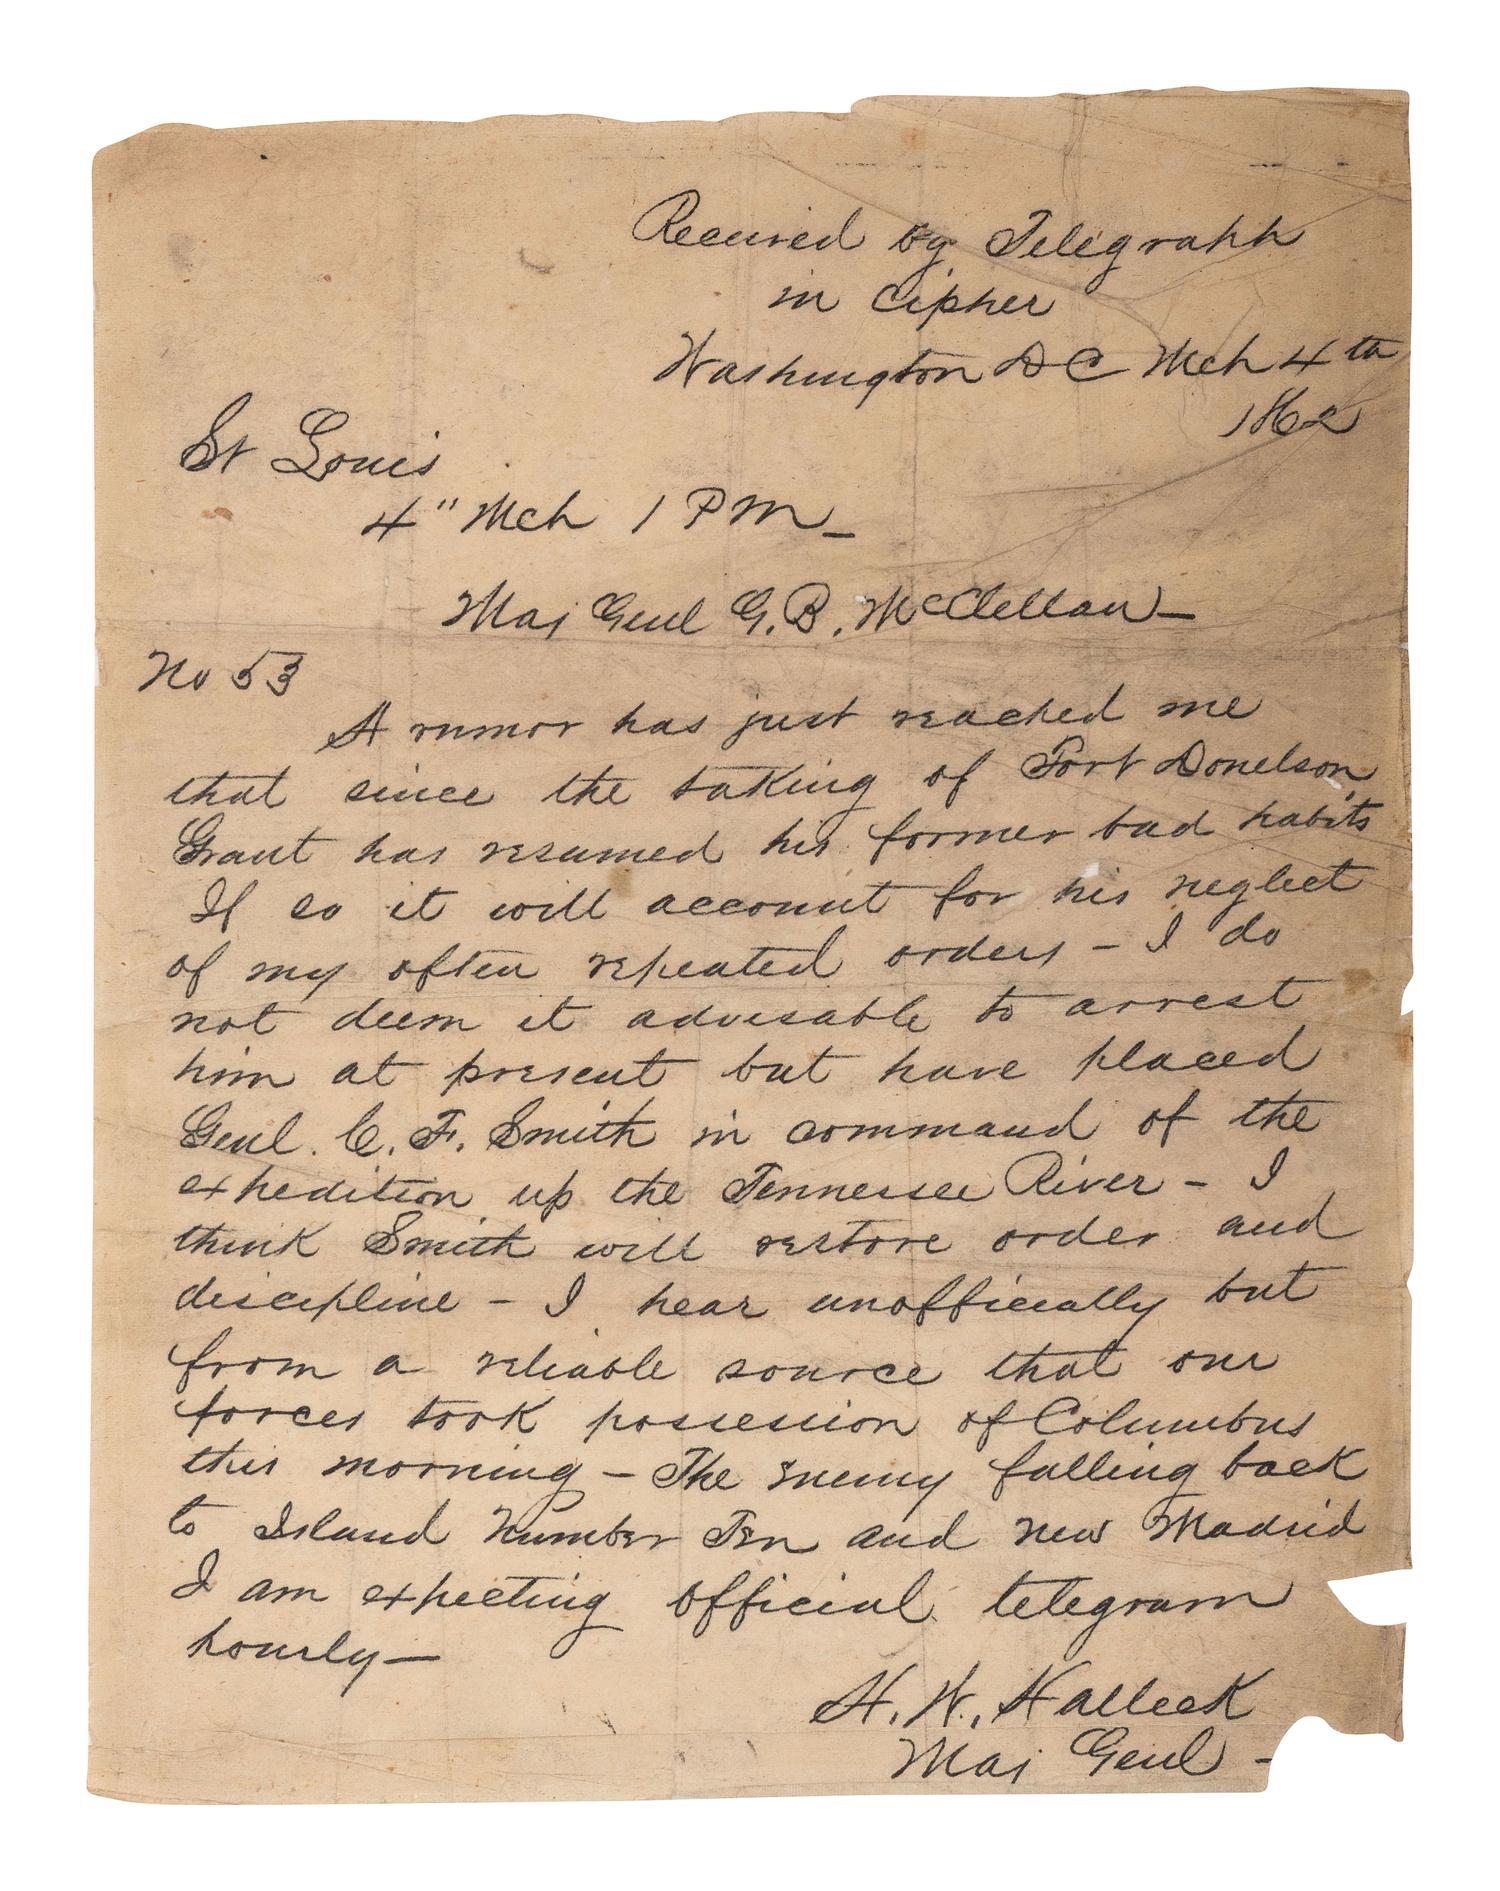 Received by Telegraph
in cipher
Washington DC Mch 4th
1862
St Louis
4" Mch 1 PM_
Maj Genl G. B. McClellan_
No 53
A rumor has just reached me
that since the taking of Fort Donelson
Grant has resumed his former bad habits
If so it will account for his neglect
of my often repeated orders - I do
not deem it advisable to arrest
him at present but have placed
Genl. C. F. Smith in command of the
expedition up the Tennessee River - I
think Smith will restore order and
discipline - I hear unofficially but
from a reliable source that our
forces took possession of Columbus
this morning - The enemy falling back
to Island Number Ten and New Madrid
I am expecting official telegram
hourly—
H. W. Halleck
Maj Genl -